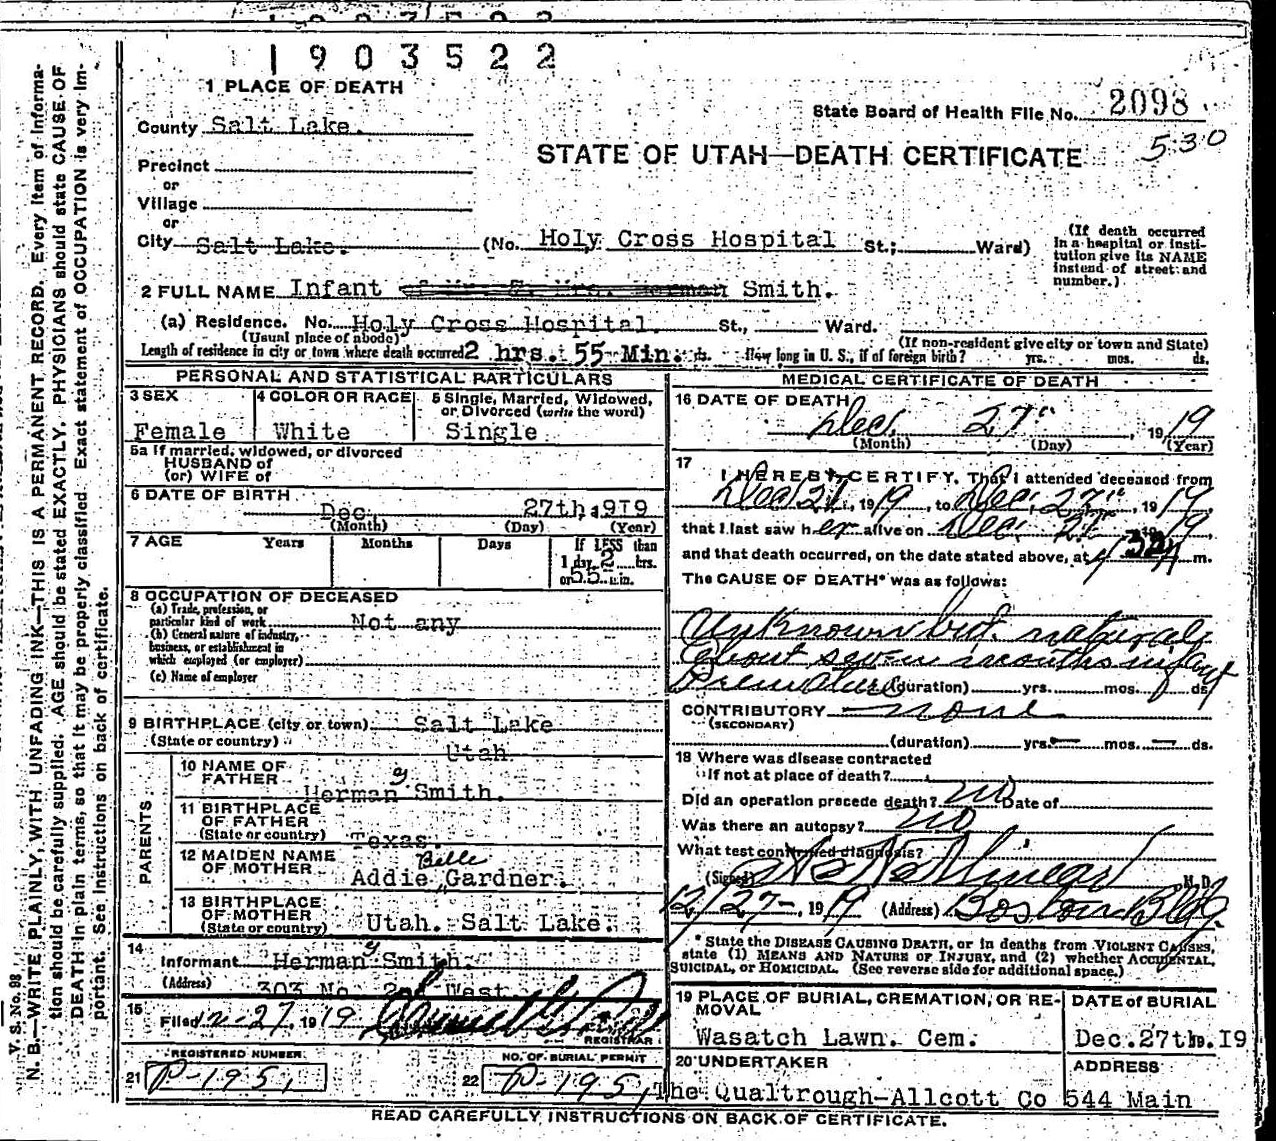 1903522
1 PLACE OF DEATH
State Board of Health File No. 2098
530
County Salt Lake.
STATE OF UTAH—DEATH CERTIFICATE
Precinct
or
Village
or
City Salt Lake. (No. Holy Cross Hospital St.; Ward)
(If death occurred in a hospital or institution give its NAME instead of street and number.)
2 FULL NAME Infant of Mr. & Mrs. Herman Smith.
(a) Residence. No. Holy Cross Hospital. St., Ward.
(Usual place of abode) (If non-resident give city or town and State)
Length of residence in city or town where death occurred 2 hrs. 55 Min. ds. How long in U. S., if of foreign birth? yrs. mos. ds.
PERSONAL AND STATISTICAL PARTICULARS
3 SEX 4 COLOR OR RACE 5 Single, Married, Widowed, or Divorced (write the word)
Female White Single
5a If married, widowed, or divorced
HUSBAND of
(or) WIFE of
6 DATE OF BIRTH
Dec 27th 1919
(Month) (Day) (Year)
7 AGE Years Months Days If LESS than
1 day 2 hrs.
or 55 min.
8 OCCUPATION OF DECEASED
(a) Trade, profession, or
particular kind of work Not any
(b) General nature of industry,
business, or establishment in
which employed (or employer)
(c) Name of employer
9 BIRTHPLACE (city or town) Salt Lake
(State or country) Utah
PARENTS
10 NAME OF FATHER Herman y Smith.
11 BIRTHPLACE OF FATHER
(State or country) Texas.
12 MAIDEN NAME OF MOTHER Addie Belle Gardner.
13 BIRTHPLACE OF MOTHER
(State or country) Utah. Salt Lake.
14
Informant Herman y Smith.
(Address) 303 No. 2nd West
15
Filed 12-27, 1919
REGISTRAR
REGISTERED NUMBER NO. OF BURIAL PERMIT
21 P-1951 22 P-1951
MEDICAL CERTIFICATE OF DEATH
16 DATE OF DEATH
Dec. 27 , 1919
(Month) (Day) (Year)
17
I HEREBY CERTIFY, That I attended deceased from
Dec 27, 1919, to Dec. 27, 1919,
that I last saw her alive on Dec. 27 1919
and that death occurred, on the date stated above, at m.
The CAUSE OF DEATH* was as follows:
Unknown but natural
About seven months infant
Premature (duration) yrs. mos. ds.
CONTRIBUTORY none
(SECONDARY)
(duration) yrs. mos. ds.
18 Where was disease contracted
if not at place of death?
Did an operation precede death? no Date of
Was there an autopsy? no
What test confirmed diagnosis?
(Signed) M. D.
12/27-, 1919 (Address) Boston Bldg.
* State the DISEASE CAUSING DEATH, or in deaths from VIOLENT CAUSES,
state (1) MEANS AND NATURE OF INJURY, and (2) whether ACCIDENTAL,
SUICIDAL, or HOMICIDAL. (See reverse side for additional space.)
19 PLACE OF BURIAL, CREMATION, OR REMOVAL DATE of BURIAL
Wasatch Lawn. Cem. Dec. 27th 19. 19
20 UNDERTAKER ADDRESS
The Qualtrough-Allcott Co 544 Main
READ CAREFULLY INSTRUCTIONS ON BACK OF CERTIFICATE.
V. S. No. 98
N. B.—WRITE PLAINLY, WITH UNFADING INK—THIS IS A PERMANENT RECORD. Every item of information should be carefully supplied. AGE should be stated EXACTLY. PHYSICIANS should state CAUSE OF DEATH in plain terms, so that it may be properly classified. Exact statement of OCCUPATION is very important. See Instructions on back of certificate.